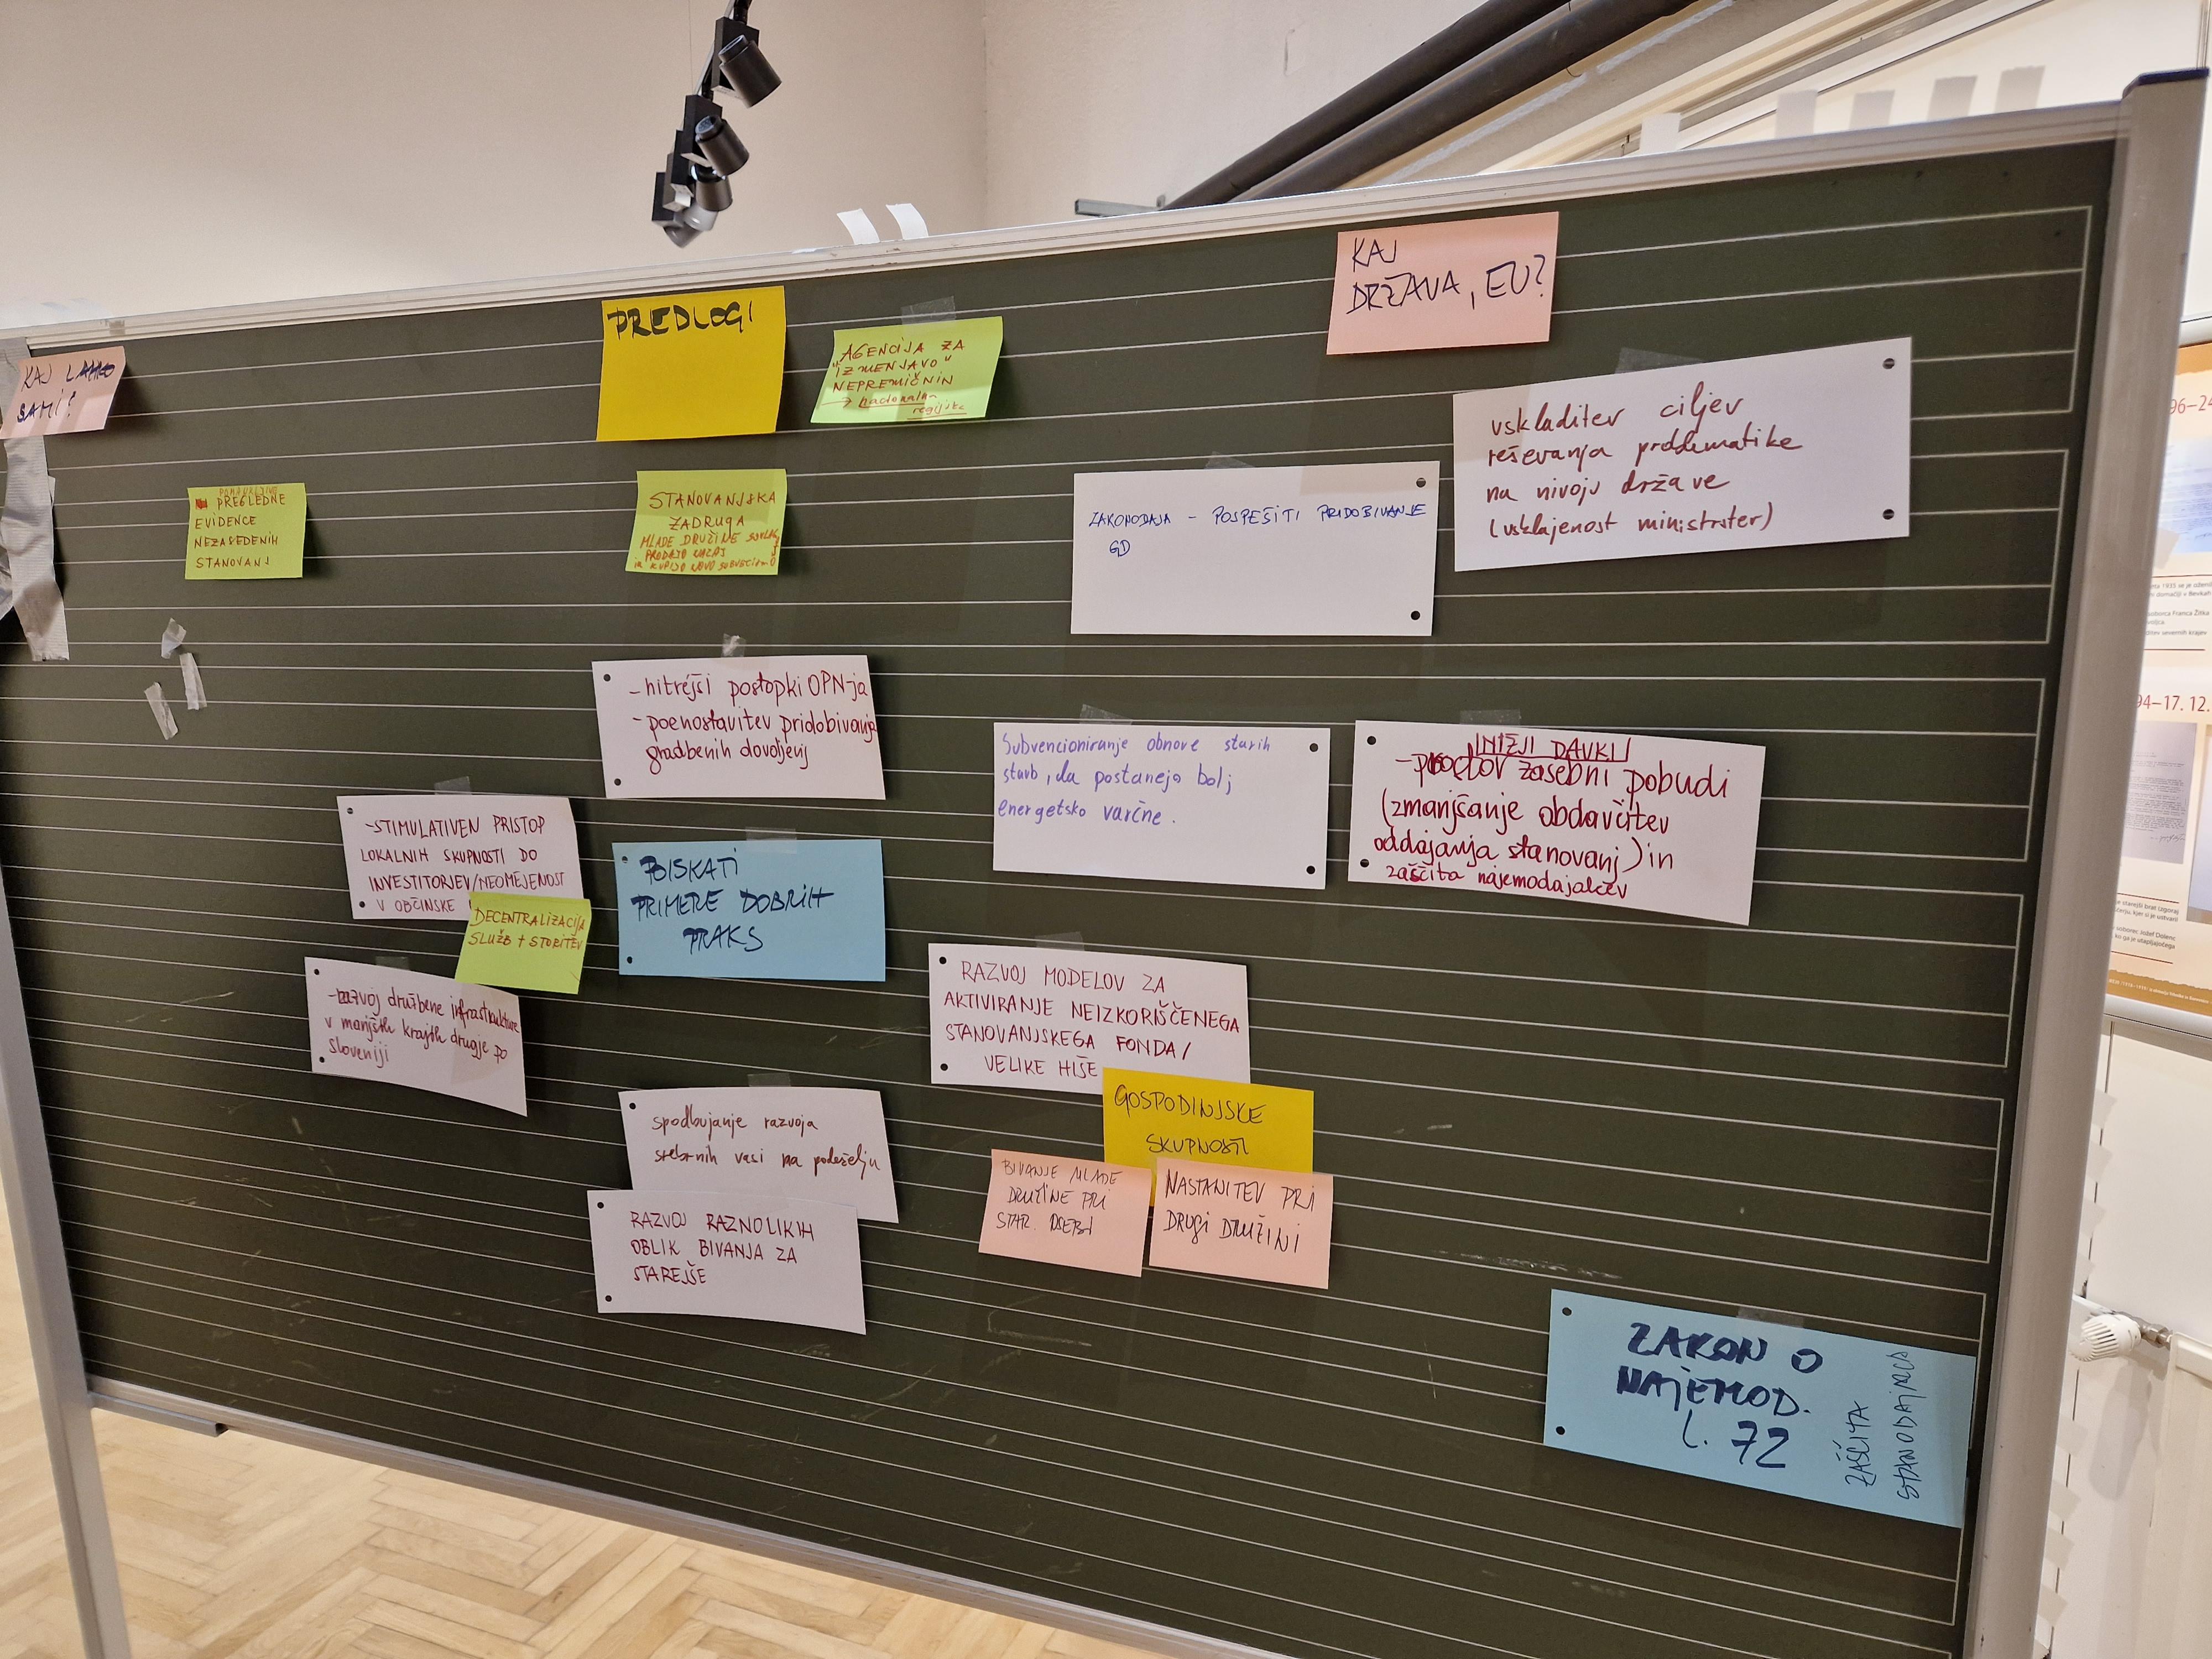 KAJ LAHKO
SAMI?
PREDLOGI
"AGENCIJA ZA
IZMENJAVO"
NEPREMIČNIN
→ nacionalna
regijska
KAJ
DRŽAVA, EU?
PREGLEDNE
EVIDENCE
NEZASEDENIH
STANOVANJ
STANOVANJSKA
ZADRUGA
MLADE DRUŽINE
PRODAJO NAZAJ
IN KUPIJO NOVO
ZAKONODAJA - POSPEŠITI PRIDOBIVANJE
GD
uskladitev ciljev
reševanja problematike
na nivoju države
(usklajenost ministrster)
- hitrejši postopki OPN-ja
- poenostavitev pridobivanja
gradbenih dovoljenj
Subvencioniranje obnove starih
stavb, da postanejo bolj
energetsko varčne.
NIŽJI DAVKI
- prostov zasebni pobudi
(zmanjšanje obdavčitev
oddajanja stanovanj) in
zaščita najemodajalcev
- STIMULATIVEN PRISTOP
LOKALNIH SKUPNOSTI DO
INVESTITORJEV/NEOMEJENOST
V OBČINSKE
DECENTRALIZACIJA
SLUŽB + STORITEV
POISKATI
PRIMERE DOBRIH
PRAKS
- razvoj družbene infrastrukture
v manjših krajih drugje po
Sloveniji
RAZVOJ MODELOV ZA
AKTIVIRANJE NEIZKORIŠČENEGA
STANOVANJSKEGA FONDA/
VELIKE HIŠE
GOSPODINJSKE
SKUPNOSTI
BIVANJE MLADE
DRUŽINE PRI
STAR. OSEBI
NASTANITEV PRI
DRUGI DRUŽINI
spodbujanje razvoja
srebrnih vasi na podeželju
RAZVOJ RAZNOLIKIH
OBLIK BIVANJA ZA
STAREJŠE
ZAKON O
NAJEMOD.
l. 72
ZAŠČITA
STANODAJALCA